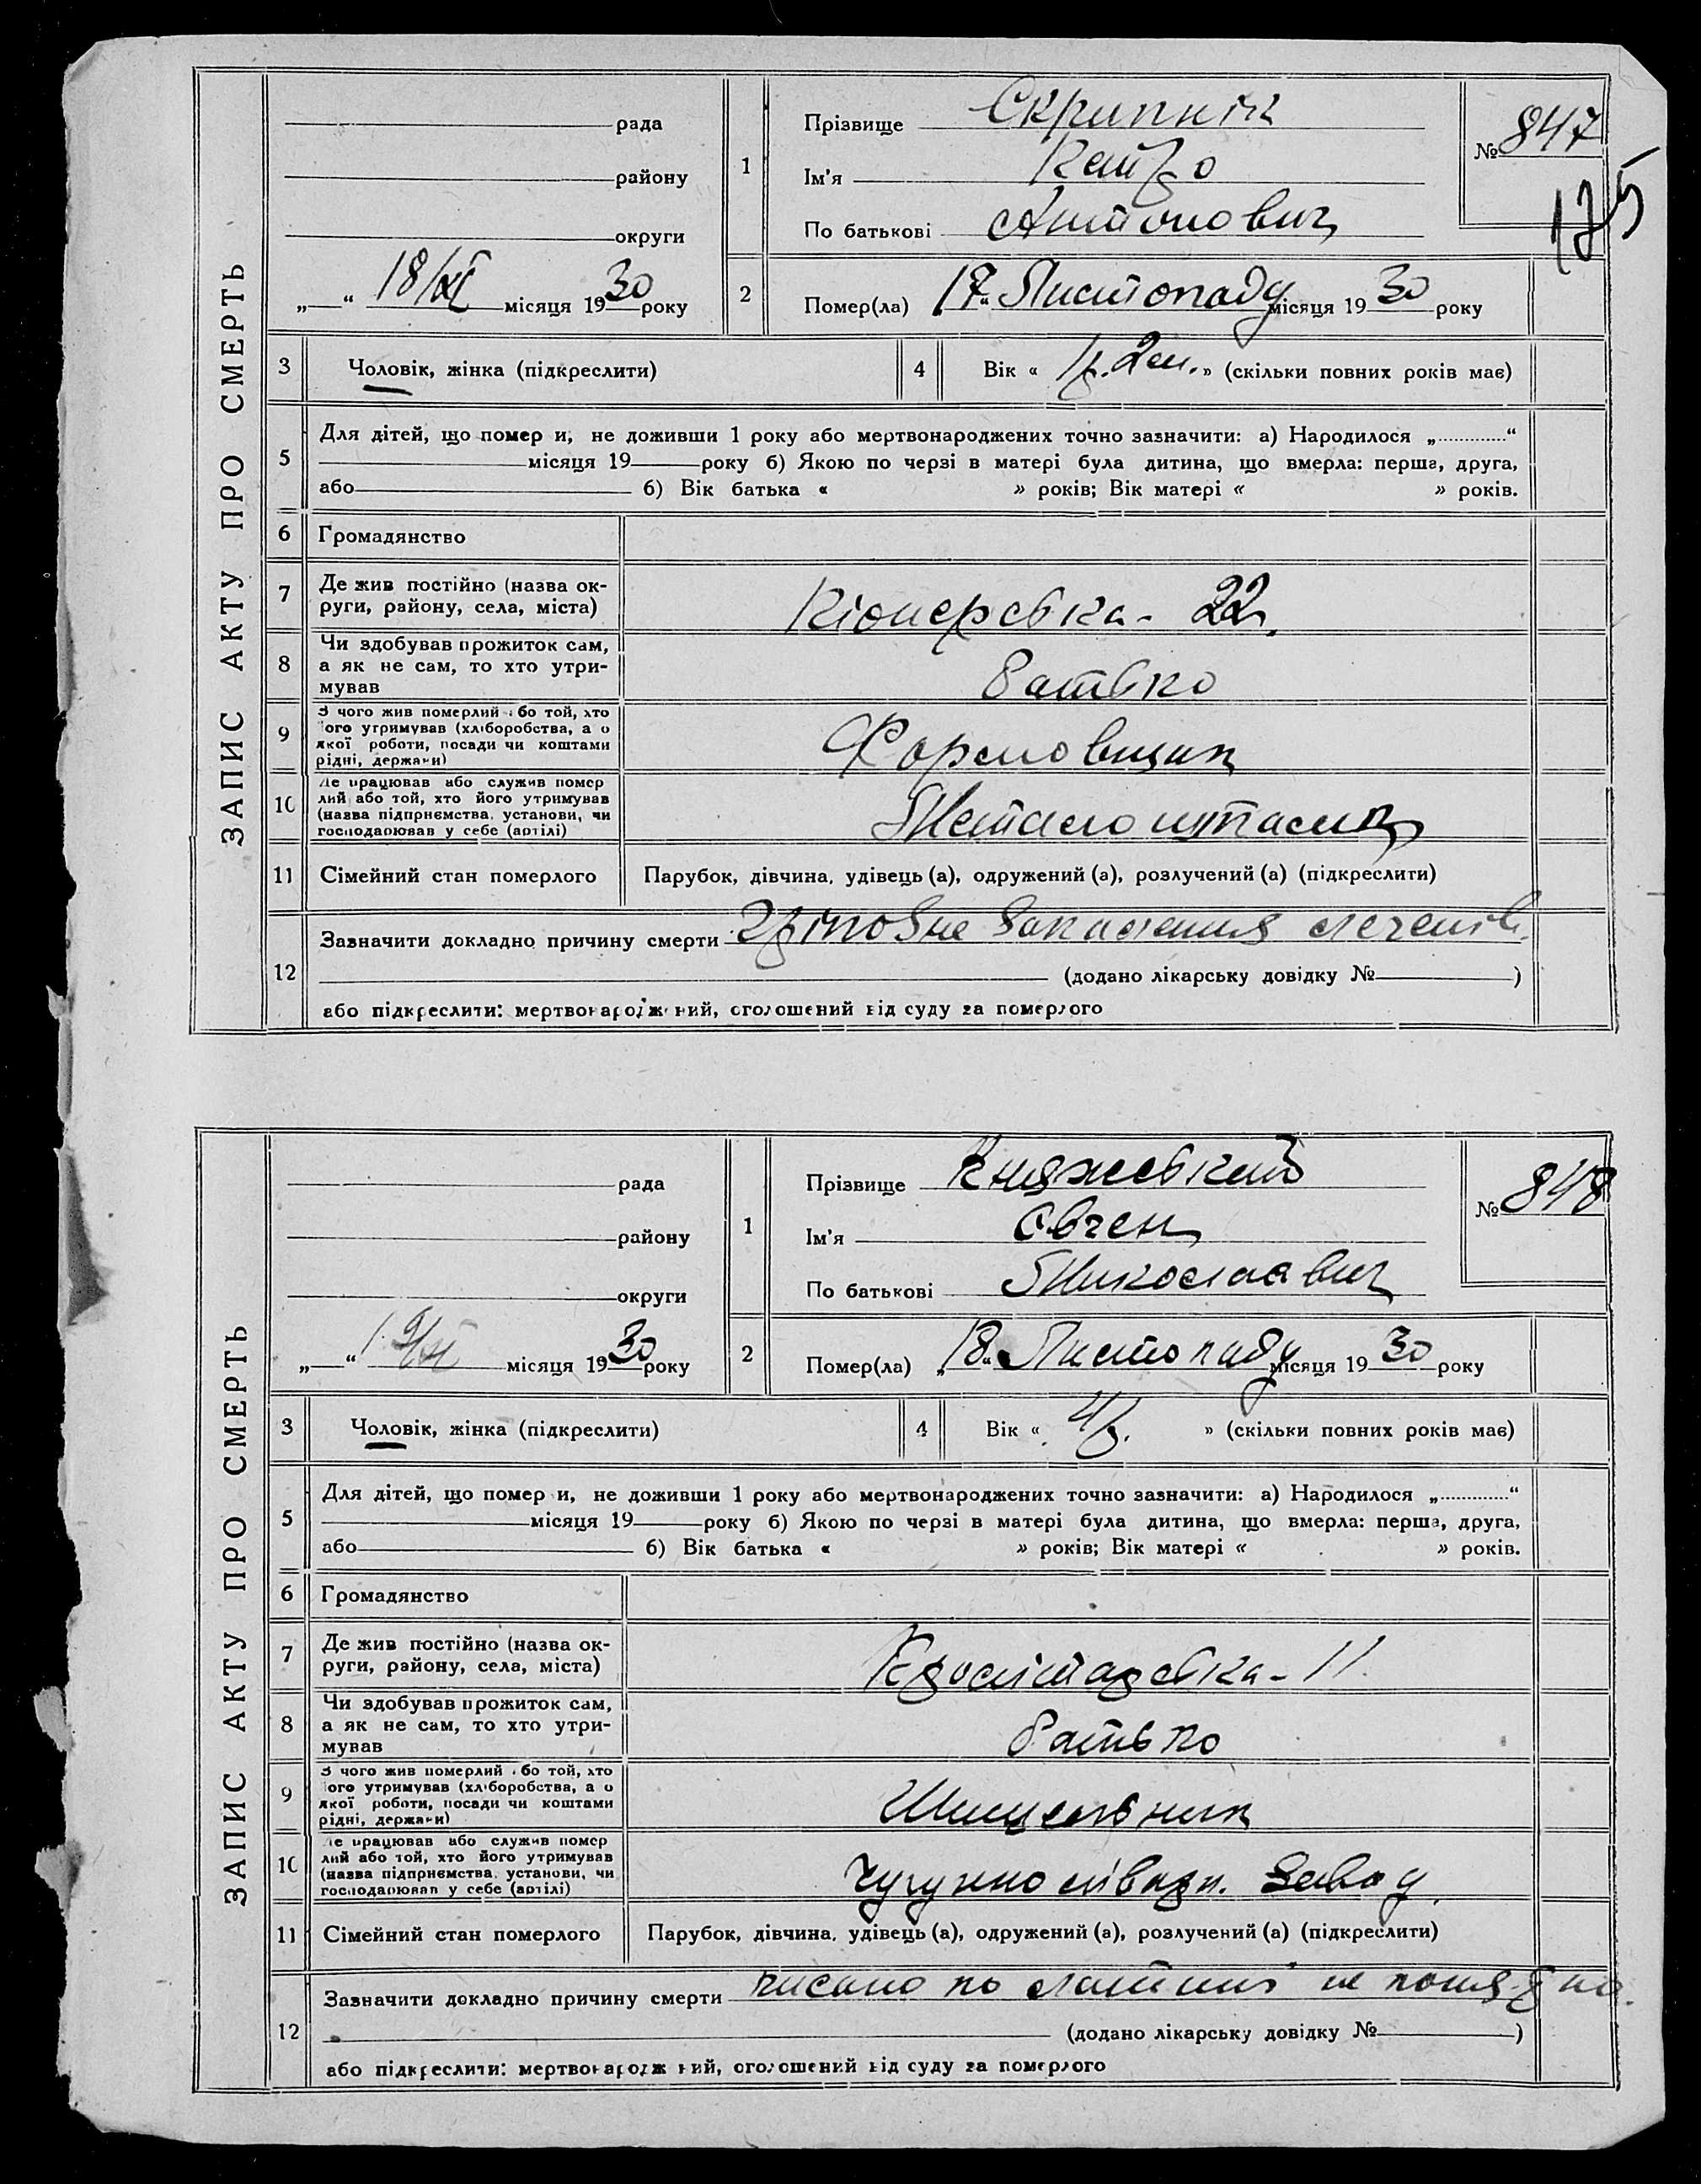 ЗАПИС АКТУ ПРО СМЕРТЬ
рада
району
округи
„ “ 18/XI місяця 1930 року
1
Прізвище Скрипник
Ім'я
По батькові Антонович
№ 847
175
2
Помер(ла) 17 Листопаду місяця 1930 року
3 Чоловік, жінка (підкреслити)
4 Вік « 1р. 2м. » (скільки повних років має)
5 Для дітей, що помер и, не доживши 1 року або мертвонароджених точно зазначити: а) Народилося „ “
місяця 19 року б) Якою по черзі в матері була дитина, що вмерла: перша, друга,
або б) Вік батька « » років; Вік матері « » років.
6 Громадянство
7 Де жив постійно (назва ок-
руги, району, села, міста)
Піонерська - 22.
8 Чи здобував прожиток сам,
а як не сам, то хто утри-
мував
Батько
9 З чого жив померлий або той, хто
його утримував (хліборобства, а о
якої роботи, посади чи коштами
рідні, держави)
Формовщик
10 Де працював або служив помер
лий або той, хто його утримував
(назва підприємства, установи, чи
господарював у себе (артілі)
Металоштамп
11 Сімейний стан померлого Парубок, дівчина, удівець (а), одружений (а), розлучений (а) (підкреслити)
12 Зазначити докладно причину смерти Гріпозне запалення легенів.
(додано лікарську довідку № )
або підкреслити: мертвонароджений, оголошений від суду за померлого
ЗАПИС АКТУ ПРО СМЕРТЬ
рада
району
округи
„ “ 19/XI місяця 1930 року
1
Прізвище Княжеський
Ім'я Євген
По батькові Миколаєвич
№ 848
2
Помер(ла) „18“ Листопаду місяця 1930 року
3 Чоловік, жінка (підкреслити)
4 Вік « 4р. » (скільки повних років має)
5 Для дітей, що помер и, не доживши 1 року або мертвонароджених точно зазначити: а) Народилося „ “
місяця 19 року б) Якою по черзі в матері була дитина, що вмерла: перша, друга,
або б) Вік батька « » років; Вік матері « » років.
6 Громадянство
7 Де жив постійно (назва ок-
руги, району, села, міста)
Кронштадська - 11
8 Чи здобував прожиток сам,
а як не сам, то хто утри-
мував
батько
9 З чого жив померлий або той, хто
його утримував (хліборобства, а о
якої роботи, посади чи коштами
рідні, держави)
Шишельник
10 Де працював або служив помер
лий або той, хто його утримував
(назва підприємства, установи, чи
господарював у себе (артілі)
Чугуно ливарн. Завод
11 Сімейний стан померлого Парубок, дівчина, удівець (а), одружений (а), розлучений (а) (підкреслити)
12 Зазначити докладно причину смерти писано по латині не понядно.
(додано лікарську довідку № )
або підкреслити: мертвонароджений, оголошений від суду за померлого